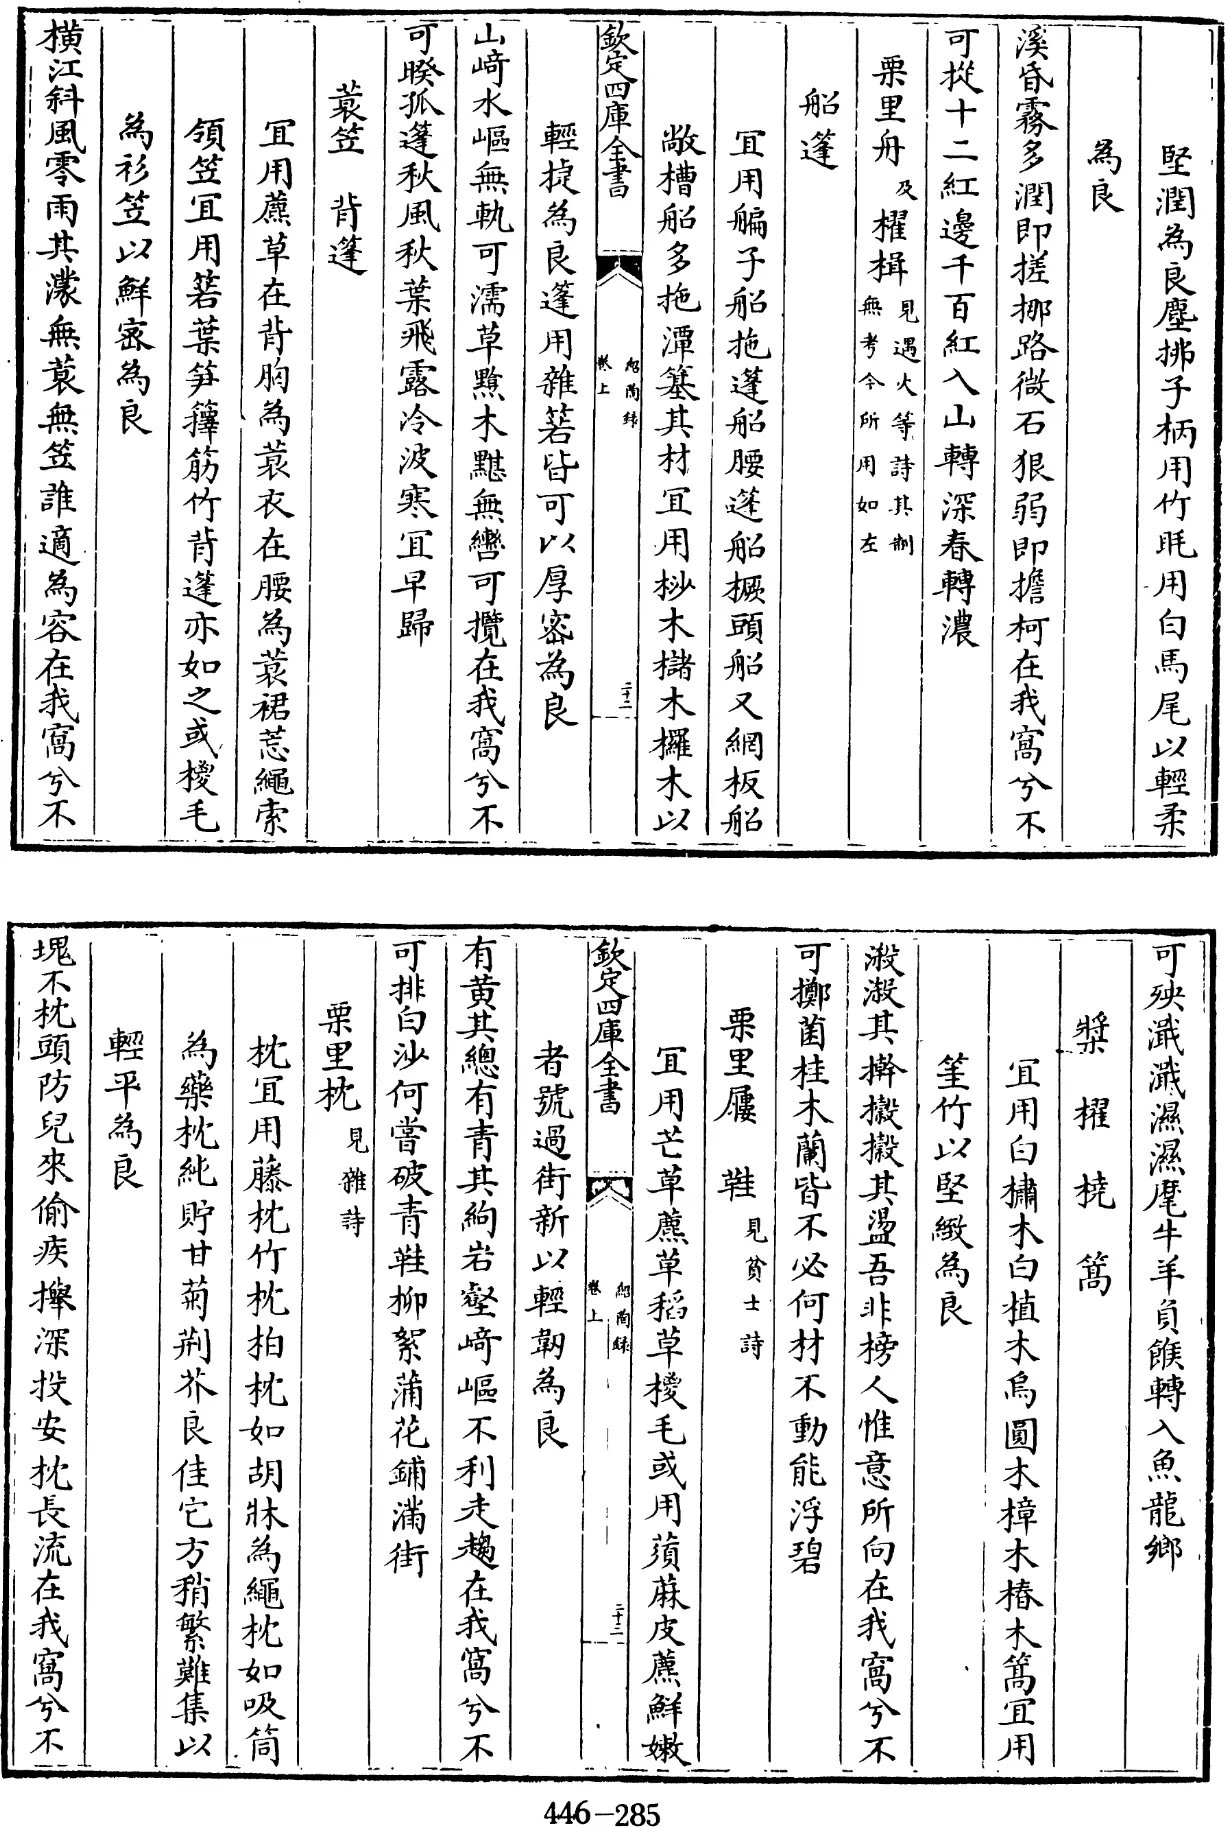 堅潤為良麈拂子柄用竹毦用白馬尾以輕柔
為良
溪昏霧多潤即搓挪路微石狠弱即擔柯在我窩兮不
可摐十二紅邊千百紅入山轉深春轉濃
栗里舟及櫂楫見遇火等詩其制無考今所用如左
船篷
宜用艑子船拖篷船腰篷船橛頭船又網板船
敞槽船多拖潭簺其材宜用桫木櫧木欏木以
欽定四庫全書
紹陶録
卷上
二十二
輕捷為良篷用雜箬皆可以厚密為良
山﨑水嶇無軌可濡草黧木黮無轡可攬在我窩兮不
可暌孤篷秋風秋葉飛露冷波寒宜早歸
蓑笠 背篷
宜用藨草在背胸為蓑衣在腰為蓑裙荒繩索
領笠宜用箬葉笋籜筋竹背篷亦如之或椶毛
為衫笠以鮮密為良
横江斜風零雨其濛無蓑無笠誰適為容在我窩兮不
可殃濈濈濕濕麾牛羊負餱轉入魚龍鄉
槳櫂橈篙
宜用白櫹木白植木烏圓木樟木椿木篙宜用
筀竹以堅緻為良
潊潊其擀㩇㩇其盪吾非榜人惟意所向在我窩兮不
可擲菌桂木蘭皆不必何材不動能浮碧
栗里屨 鞋見貧士詩
宜用芒草藨草稻草椶毛或用蕦蔴皮藨鮮嫩
欽定四庫全書
紹陶録
卷上
二十三
者號過街新以輕韌為良
有黄其繐有青其絇岩壑﨑嶇不利走趨在我窩兮不
可排白沙何嘗破青鞋柳絮蒲花鋪滿街
栗里枕見雜詩
枕宜用藤枕竹枕柏枕如胡牀為繩枕如吸筒
為藥枕純貯甘菊荆芥良佳它方稍繁難集以
輕平為良
塊不枕頭防兒來偷疾攑深投安枕長流在我窩兮不
446-285